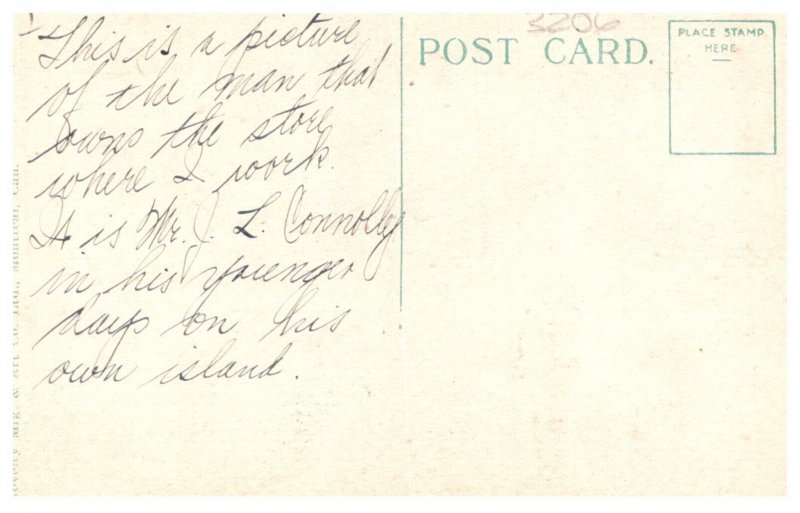 This is a picture
of the man that
owns the store
where I work.
It is Mr. J. L. Connolly
in his younger
days on his
own island.
3206
POST CARD.
PLACE STAMP
HERE
Novelty Mfg. & Art Co. Ltd., Montreal, Can.